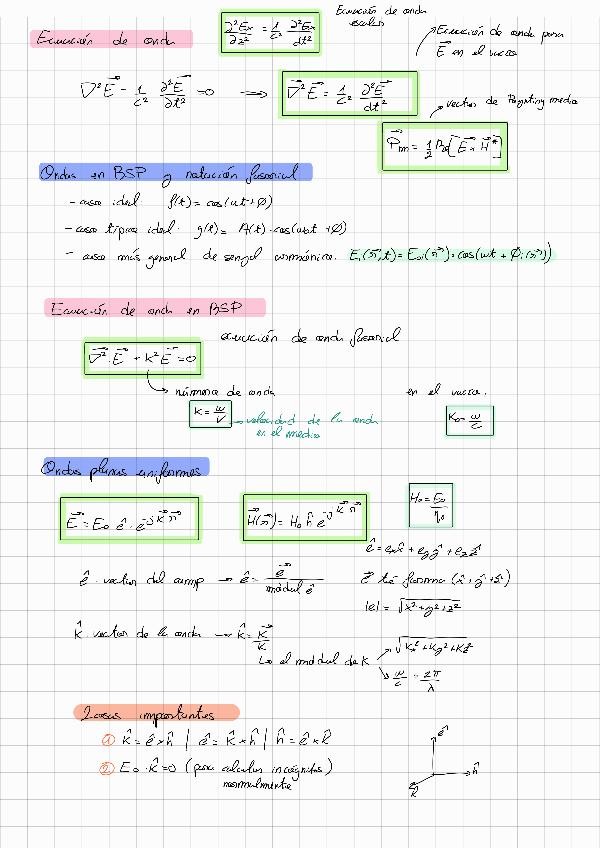 Ecuación de onda
∂²Ex/∂z² = 1/c² ∂²Ex/dt²
Ecuación de onda
escalar
Ecuación de onda para
E⃗ en el vacío
∇²E⃗ - 1/c² ∂²E⃗/∂t² = 0 → ∇⃗²E⃗ = 1/c² ∂²E⃗/dt²
vector de Poynting medio
P⃗m = 1/2 Re[E⃗ x H⃗*]
Ondas en BSP y notación fasorial
- caso ideal: f(t) = cos(ωt+φ)
- caso típico ideal: g(t) = A(t)·cos(ωot +φ)
- caso más general de señal armónica: Ei(r⃗,t) = Eoi(r⃗)·cos(ωt + φi(r⃗))
Ecuación de onda en BSP
ecuación de onda fasorial
∇⃗²·E⃗ + k²E⃗ = 0
número de onda
en el vacío.
K = ω/v → velocidad de la onda
en el medio
Ko = ω/c
Ondas planas uniformes
E⃗ = Eo ê · e^-jk⃗r⃗
H⃗(r⃗) = Ho ĥ e^-jk⃗r⃗
Ho = Eo/ηo
ê = exx̂ + eyŷ + ezẑ
ê: vector del camp → ê = e⃗/mòdul ê
e⃗ té forma (x̂+ŷ+ẑ)
|e| = √x²+y²+z²
k̂: vector de la onda → k̂ = K⃗/K
el mòdul de K
√Kx²+Ky²+Kz²
ω/c = 2π/λ
2 cosas importantes
① k̂ = ê x ĥ | ê = k̂ x ĥ | ĥ = ê x k̂
② Eo·k̂ = 0 (para calcular incógnitas)
normalmente
ê
ĥ
k̂